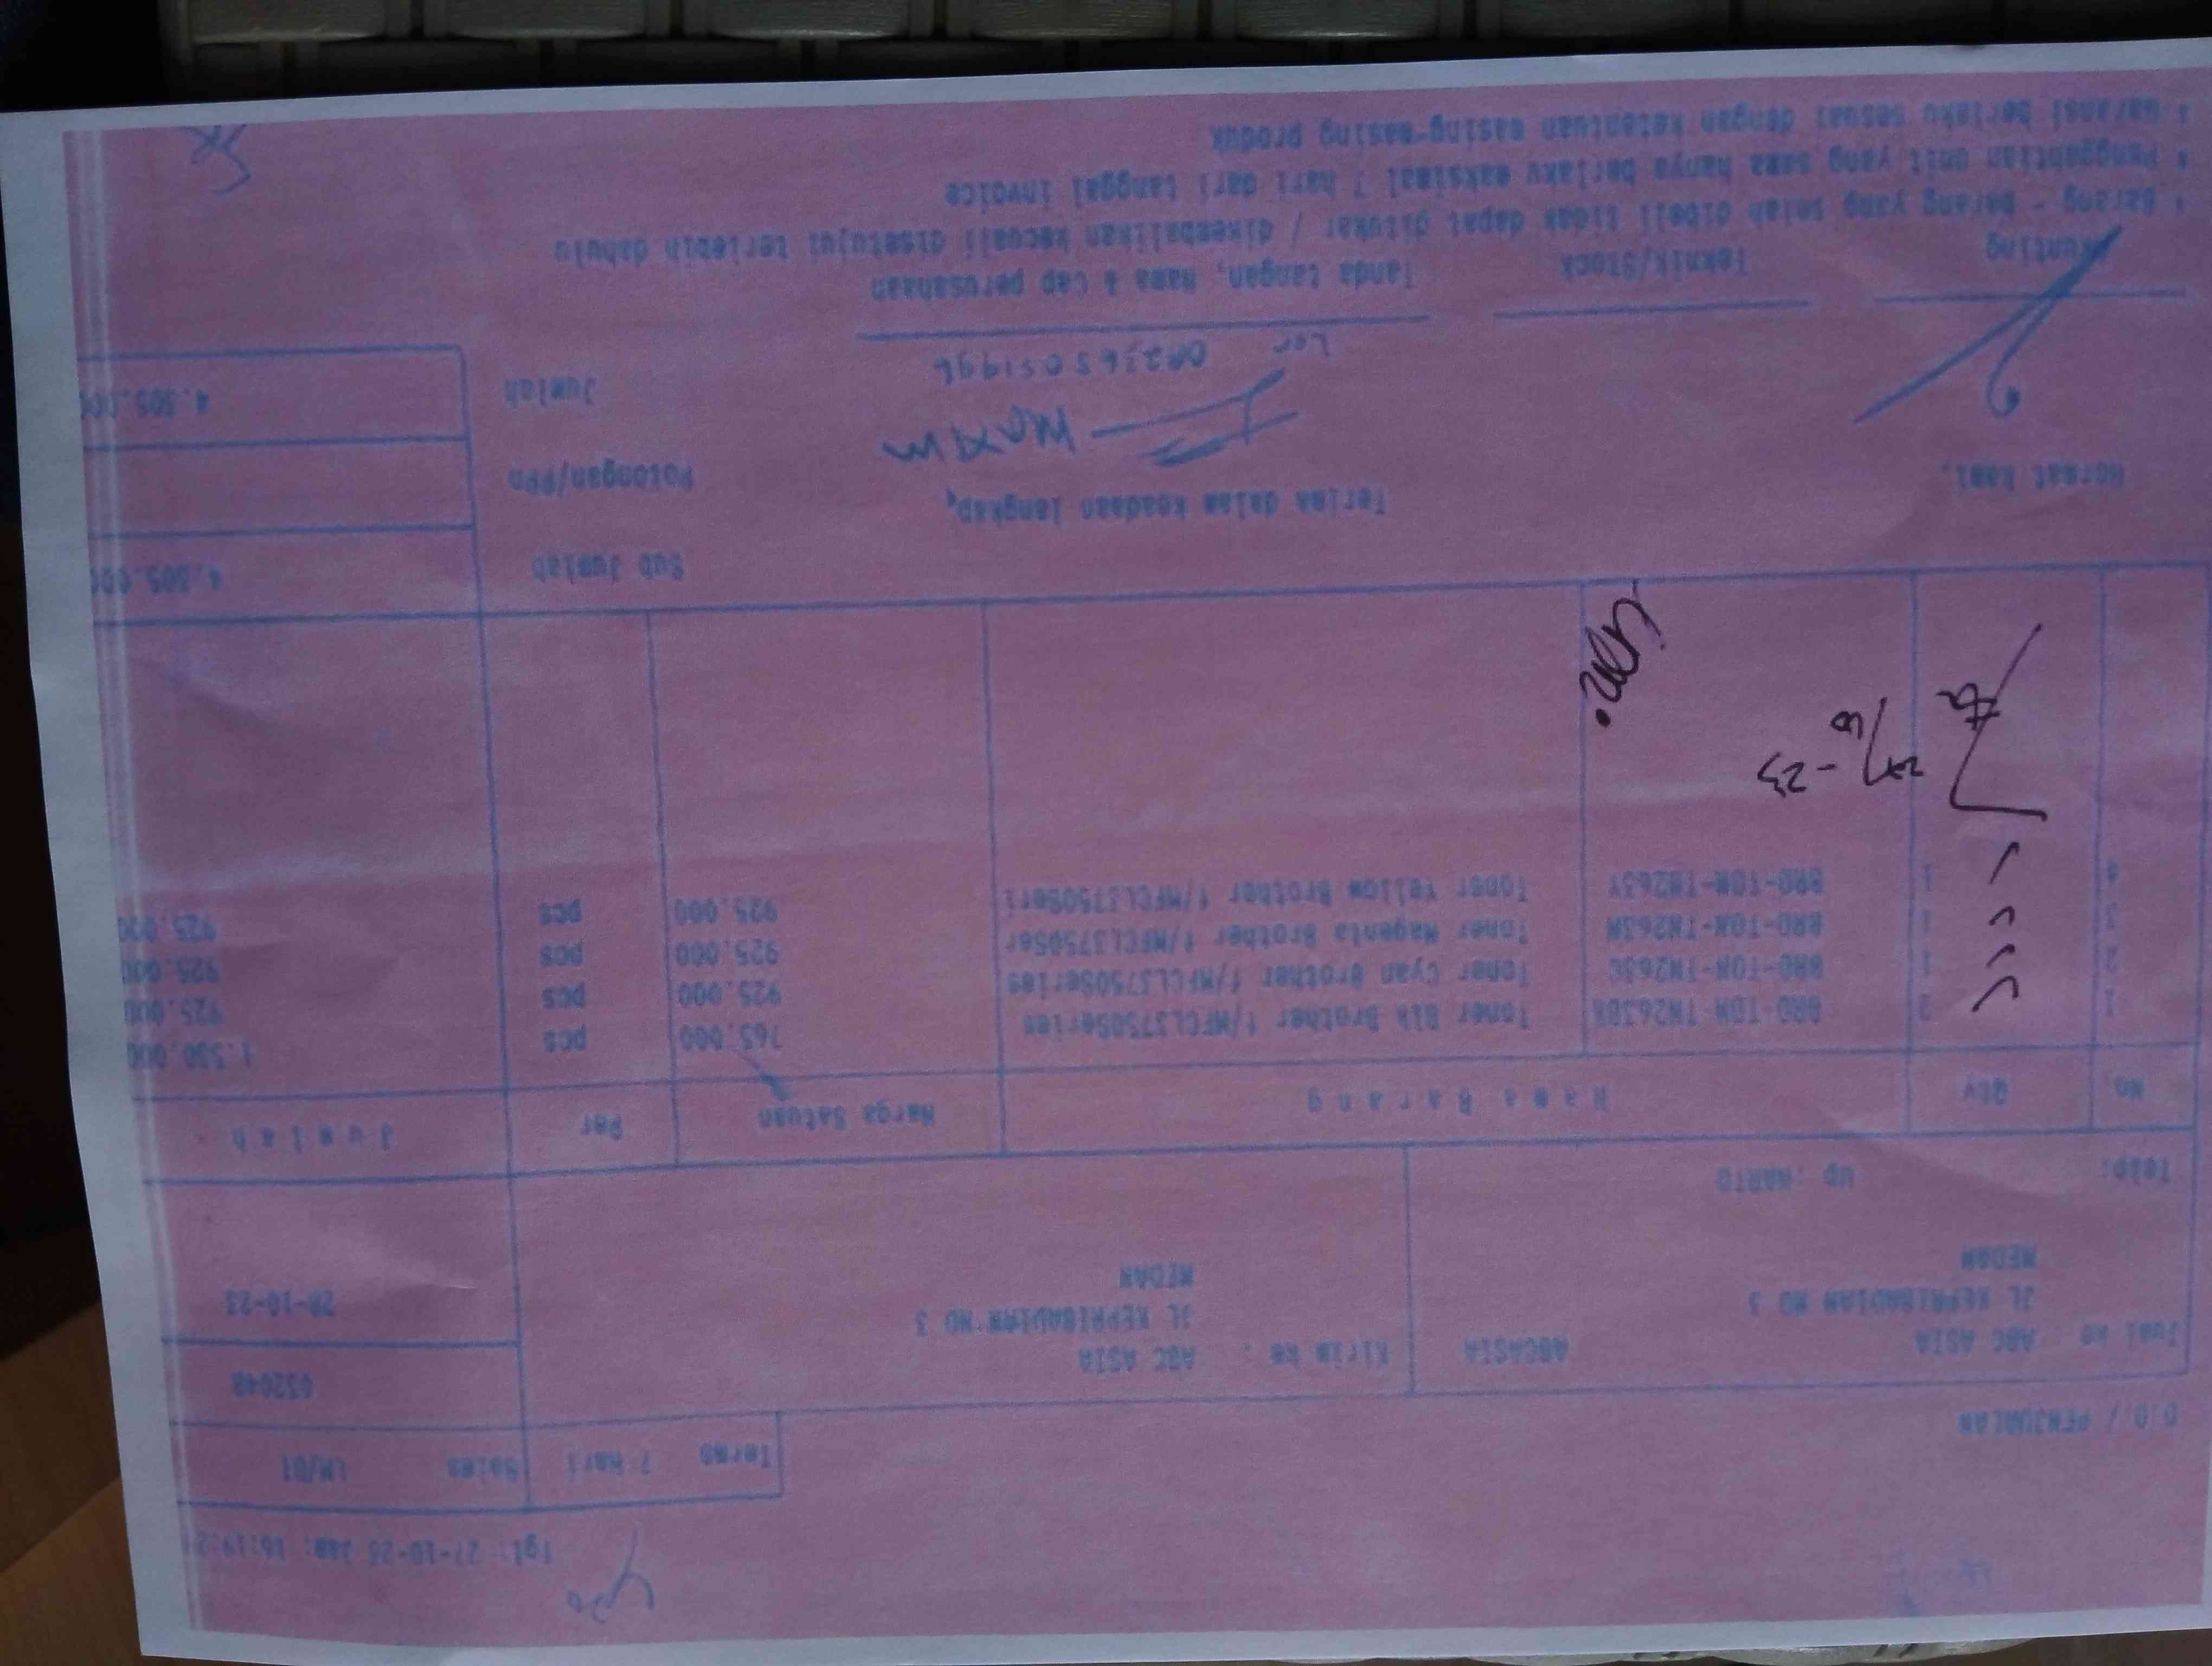 Tgl: 27-10-23 Jam: 16:19:2
Terms 7 Hari Sales LM/01
D.O / PENJUALAN
032048
Jual ke : ABC ASIA ABCASIA
JL KEPRIBADIAN NO 3
MEDAN
Kirim ke : ABC ASIA
JL KEPRIBADIAN NO 3
MEDAN
28-10-23
Telp: Up :HARTO
No. Qty Nama Barang Harga Satuan Per Jumlah
1 2 BRO-TON-TN263BK Toner Blk Brother f/MFCL3750Series 765.000 pcs 1.530.000
2 1 BRO-TON-TN263C Toner Cyan Brother f/MFCL3750Series 925.000 pcs 925.000
3 1 BRO-TON-TN263M Toner Magenta Brother f/MFCL3750Ser 925.000 pcs 925.000
4 1 BRO-TON-TN263Y Toner Yellow Brother f/MFCL3750Seri 925.000 pcs 925.000
27/10 - 23
Sub Jumlah 4.305.000
Hormat kami, Terima dalam keadaan lengkap,
Potongan/PPn
Maxim
Jumlah 4.305.000
082365051996
Teknik/Stock Tanda tangan, Nama & Cap perusahaan
* Barang - barang yang telah dibeli tidak dapat ditukar / dikembalikan kecuali disetujui terlebih dahulu
* Penggantian unit yang sama hanya berlaku maksimal 7 hari dari tanggal invoice
* Garansi berlaku sesuai dengan ketentuan masing-masing produk